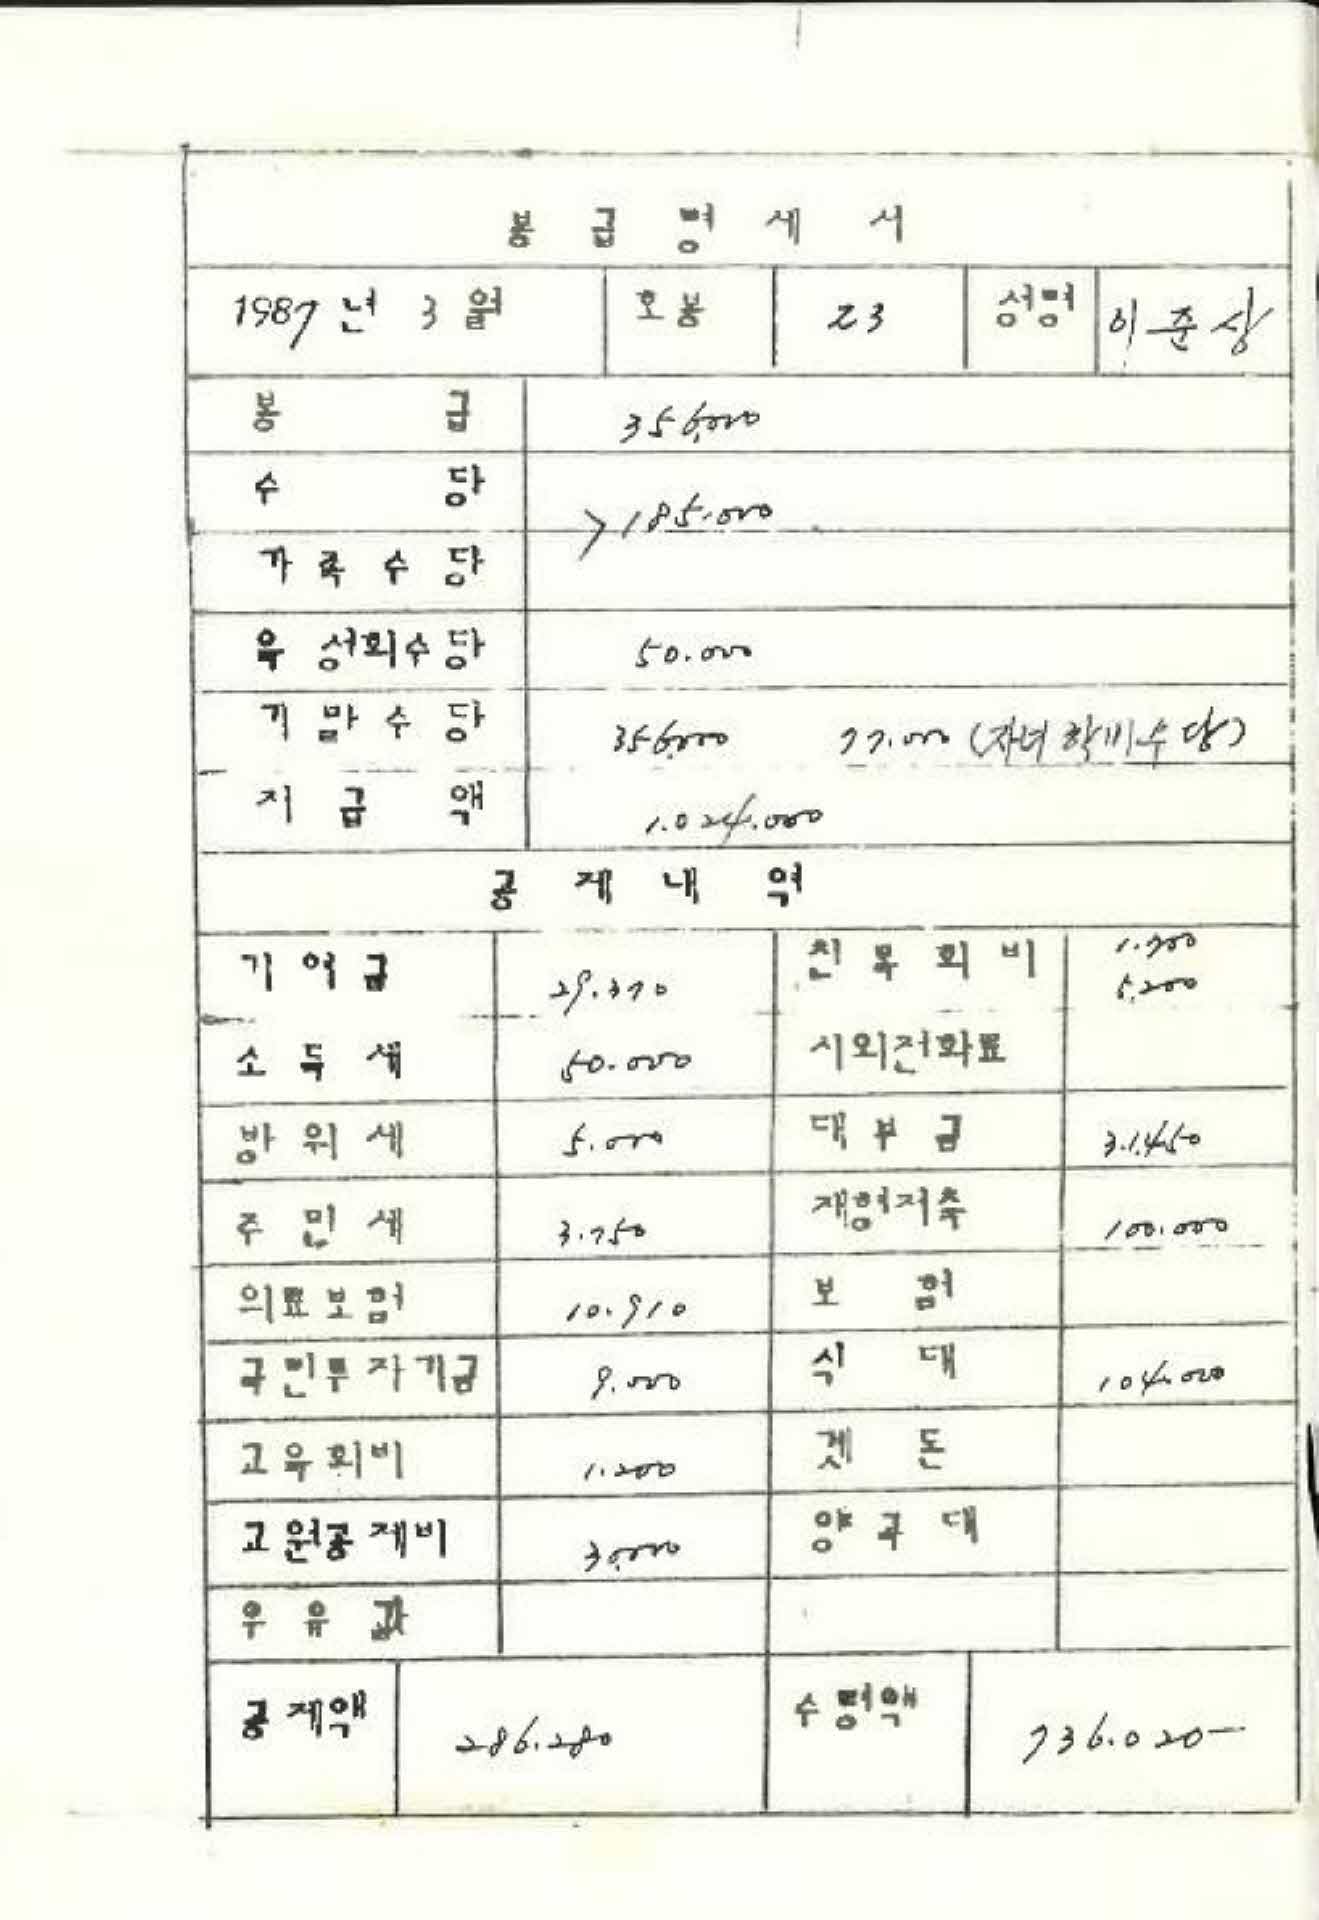 봉급명세서
1987년 3월 호봉 23 성명 이준상
봉급 356,000
수당 > 185.000
가족수당
육성회수당 50.000
기말수당 356,000 77.000 (자녀학비수당)
지급액 1.024.000
공제내역
기여금 29.370 친목회비 1.700
5,200
소득세 50.000 시외전화료
방위세 5.000 대부금 31.450
주민세 3.750 재형저축 100.000
의료보험 10.910 보험
국민투자기금 9.000 식대 104.000
교육회비 1.200 곗돈
교원공제비 30,000 양곡대
우유값
공제액 286.280 수령액 736.020-